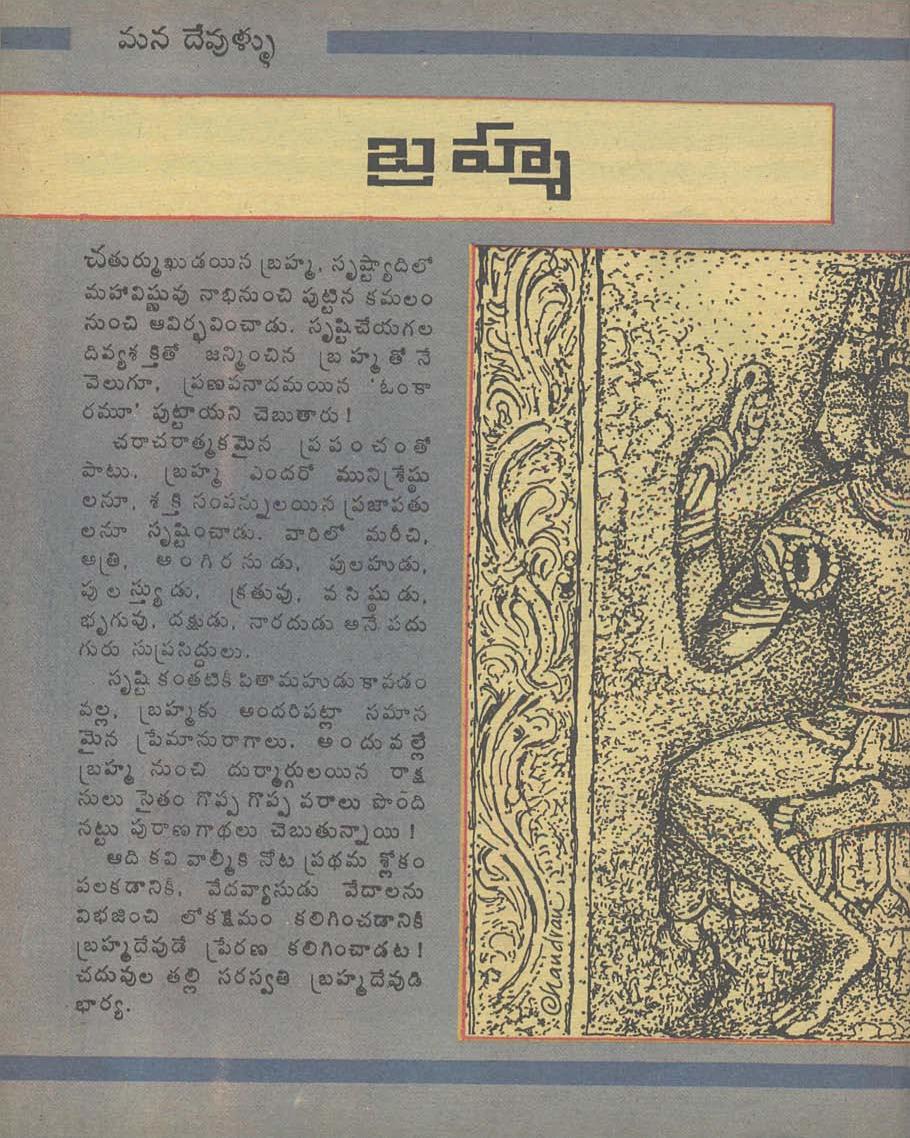 మన దేవుళ్ళు
బ్రహ్మ
చతుర్ముఖుడయిన బ్రహ్మ, సృష్ట్యాదిలో
మహావిష్ణువు నాభినుంచి పుట్టిన కమలం
నుంచి ఆవిర్భవించాడు. సృష్టిచేయగల
దివ్యశక్తితో జన్మించిన బ్రహ్మతోనే
వెలుగూ, ప్రణవనాదమయిన 'ఓంకా
రమూ' పుట్టాయని చెబుతారు!
చరాచరాత్మకమైన ప్రపంచంతో
పాటు, బ్రహ్మ ఎందరో మునిశ్రేష్ఠు
లనూ, శక్తి సంపన్నులయిన ప్రజాపతు
లనూ సృష్టించాడు. వారిలో మరీచి,
అత్రి, అంగిరసుడు, పులహుడు,
పులస్త్యుడు, క్రతువు, వసిష్ఠుడు,
భృగువు, దక్షుడు, నారదుడు అనే పదు
గురు సుప్రసిద్ధులు.
సృష్టి కంతటికీ పితామహుడు కావడం
వల్ల, బ్రహ్మకు అందరిపట్లా సమాన
మైన ప్రేమానురాగాలు. అందువల్లే
బ్రహ్మ నుంచి దుర్మార్గులయిన రాక్ష
సులు సైతం గొప్ప గొప్ప వరాలు పొంది
నట్టు పురాణగాథలు చెబుతున్నాయి!
ఆది కవి వాల్మీకి నోట ప్రథమ శ్లోకం
పలకడానికీ, వేదవ్యాసుడు వేదాలను
విభజించి లోకక్షేమం కలిగించడానికీ
బ్రహ్మదేవుడే ప్రేరణ కలిగించాడట!
చదువుల తల్లి సరస్వతి బ్రహ్మదేవుడి
భార్య.
Chandran